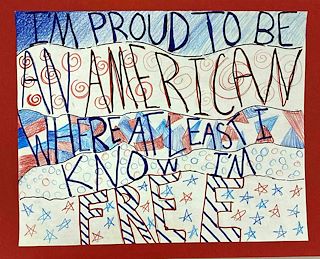 I'M PROUD TO BE
AN AMERICAN
WHERE AT LEAST I
KNOW I'M
FREE